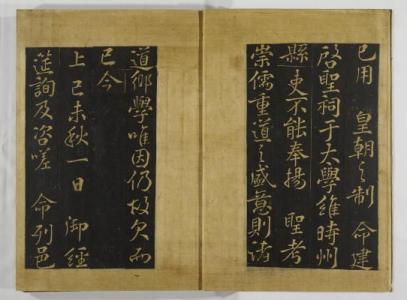 已用　皇朝之制　命建
啓聖祠于大學維時州
縣吏不能奉揚　聖考
崇儒重道之盛意則諸
道鄉學唯因仍故欠而
已今
上己未秋一日　御經
筵詢及咨嗟　命列邑